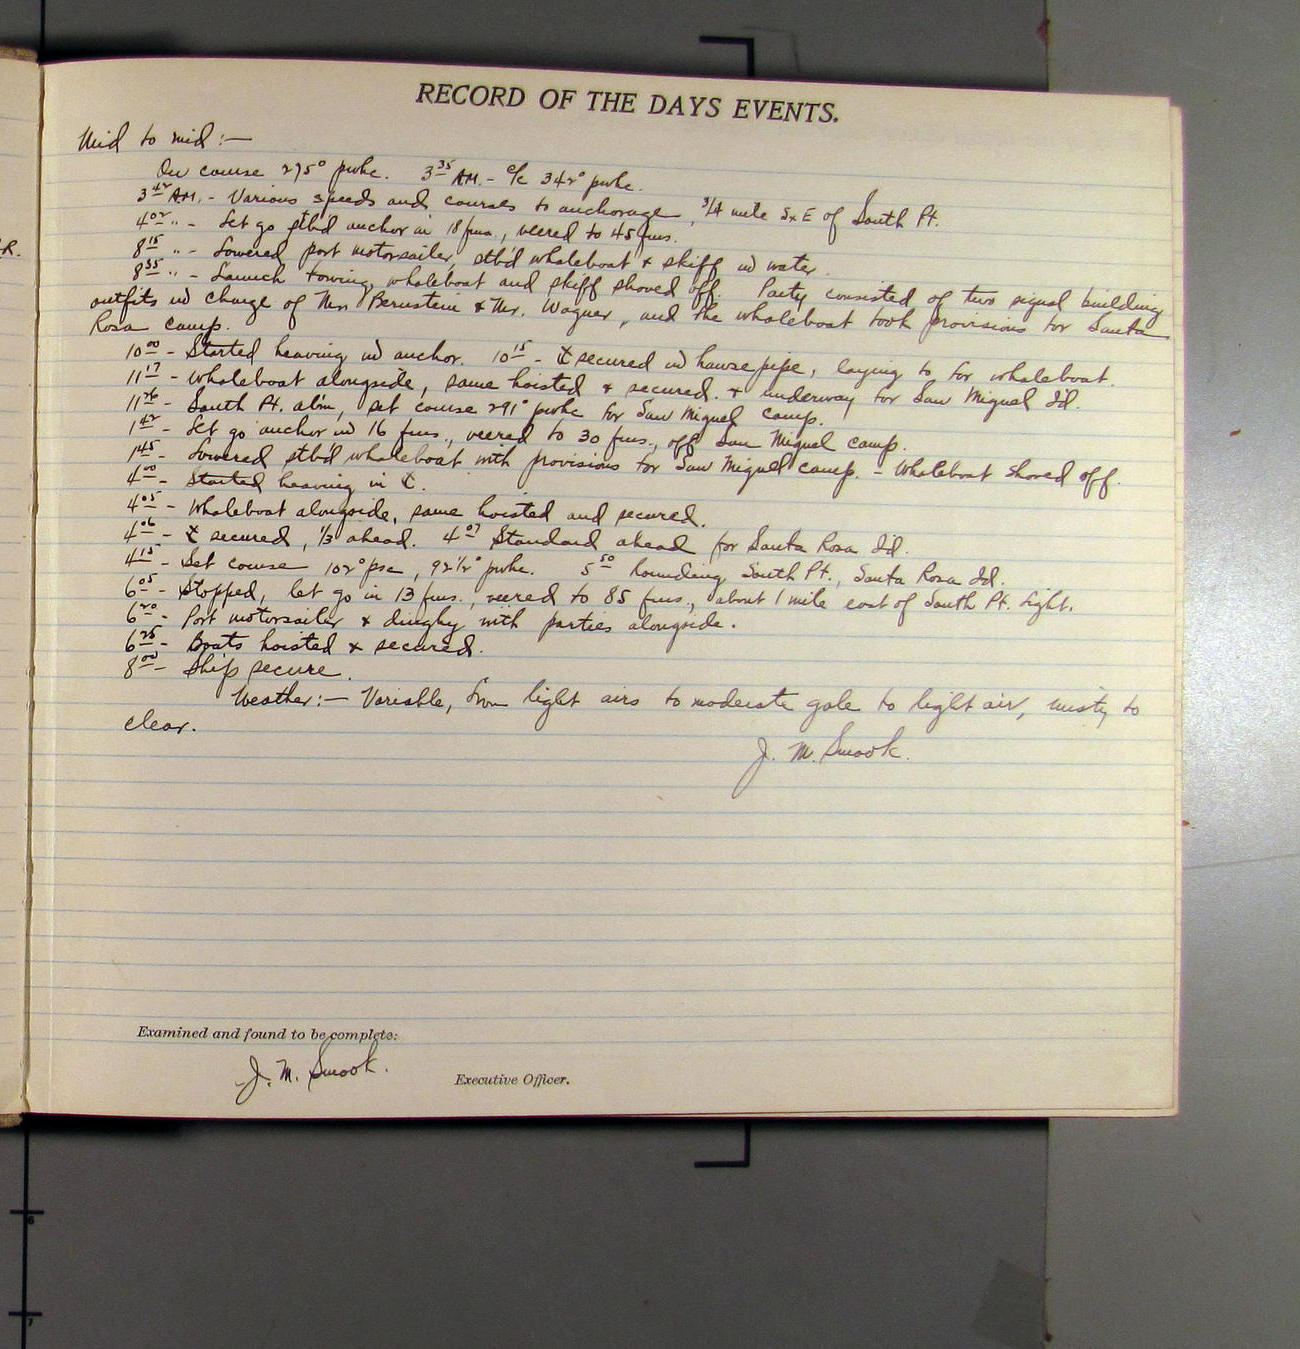 RECORD OF THE DAYS EVENTS.
Mid to mid:—
On course 275° pwhc. 3³⁵ AM. - c/c 342° pwhc.
3⁴² AM. - Various speeds and courses to anchorage, 3/4 mile SxE of South Pt.
4⁰² " - Let go stbd anchor in 18 fms., veered to 45 fms.
8¹⁵ " - Lowered port motorsailer, stb'd whaleboat & skiff in water.
8³⁵ " - Launch towing whaleboat and skiff shoved off. Party consisted of two signal building
outfits in charge of Mr. Bernstein & Mr. Wagner, and the whaleboat took provisions for Santa
Rosa camp.
10⁰⁰ - Started heaving in anchor. 10¹⁵ - ⚓ secured in hawsepipe, laying to for whaleboat.
11¹⁷ - Whaleboat alongside, same hoisted & secured. & underway for San Miguel I'd.
11²⁶ - South Pt. abm, set course 291° pwhc for San Miguel camp.
1⁴² - Let go anchor in 16 fms., veered to 30 fms., off San Miguel camp.
1⁴⁵ - Lowered stb'd whaleboat with provisions for San Miguel camp. - Whaleboat shoved off.
4⁰⁰ - Started heaving in ⚓.
4⁰⁵ - Whaleboat alongside, same hoisted and secured.
4⁰⁶ - ⚓ secured, 1/3 ahead. 4⁰⁷ Standard ahead for Santa Rosa I'd.
4¹⁵ - Set course 102° psc, 92½° pwhc. 5⁵⁰ Rounding South Pt., Santa Rosa Id.
6⁰⁵ - Stopped, let go in 13 fms., veered to 85 fms., about 1 mile east of South Pt. Light.
6²⁰ - Port motorsailer & dinghy with parties alongside.
6²⁵ - Boats hoisted & secured.
8⁰⁰ - Ship secure.
Weather:— Variable, from light airs to moderate gale to light air, misty to
clear.
J. M. Smook.
Examined and found to be complete:
J. M. Smook.
Executive Officer.
R.
6
7